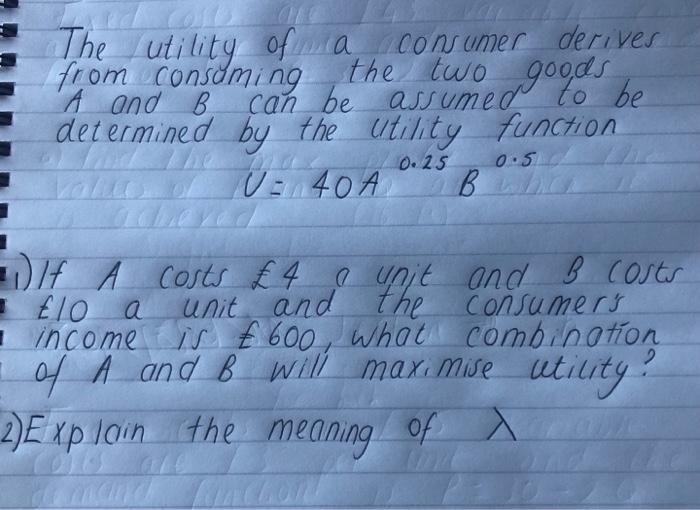 The utility of a consumer derives
from consuming the two goods
A and B can be assumed to be
determined by the utility function
U = 40A^0.25 B^0.5
1) If A costs £4 a unit and B costs
£10 a unit and the consumers
income is £600, what combination
of A and B will maximise utility?
2) Explain the meaning of λ